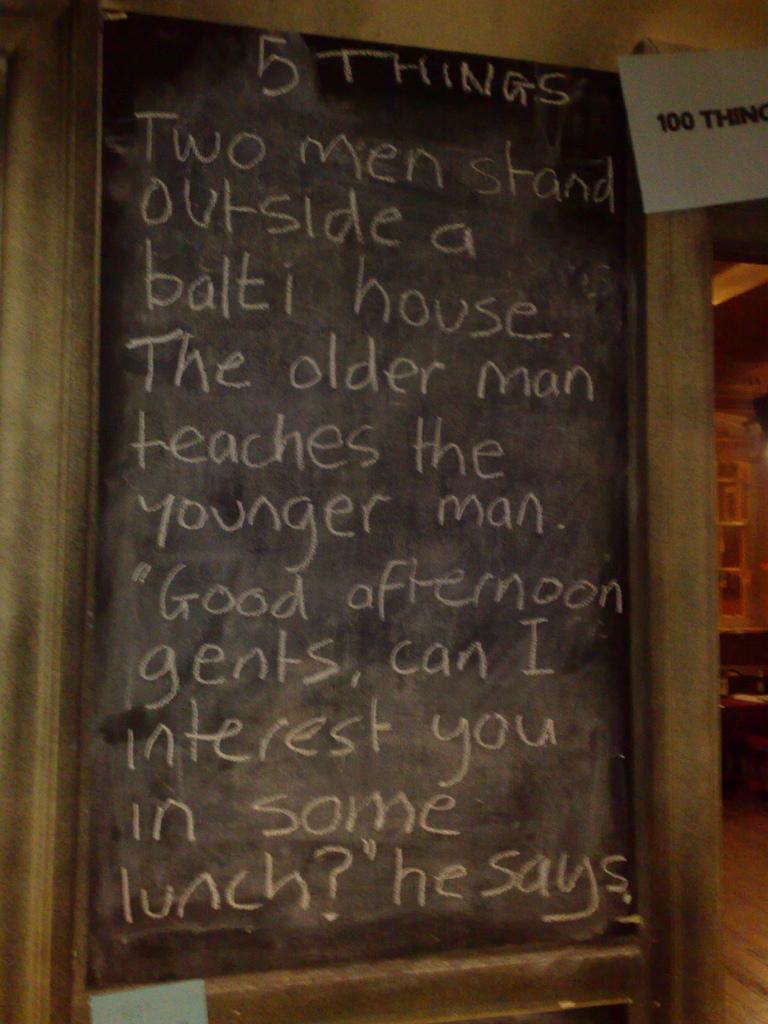 5 THINGS
Two men stand
outside a
balti house.
The older man
teaches the
younger man.
"Good afternoon
gents, can I
interest you
in some
lunch?" he says.
100 THING